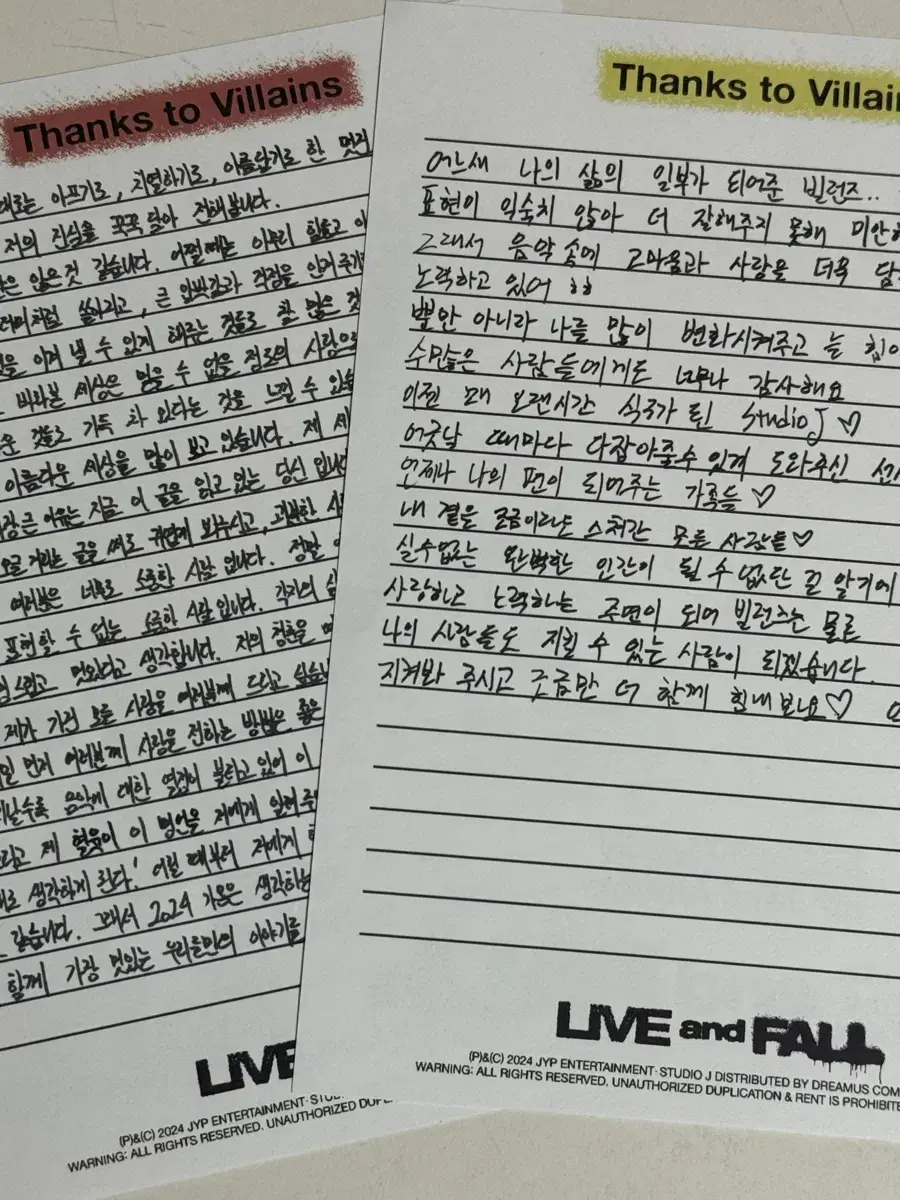 Thanks to Villains
대로는 아프기로, 치열하기로, 아름답기로 한 멋진
저의 진심을 꾹꾹 담아 전해봅니다.
않은 것 같습니다. 어쩔 때는 아무리 힘들고
더미처럼 쓸리고, 큰
이겨 낼 수 있게 해주는 것들도 참 많은 것
바라본 세상은 믿을 수 없을 정도의 사랑으로
것들로 가득 차 있다는 것을 느낄 수
아름다운 세상을 많이 보고 있습니다. 제
큰 이유는 지금 이 글을 읽고 있는 당신 입니다
글을 써도 귀엽게 봐주시고,
여러분은 너무도 소중한 사람 입니다. 정말
표현할 수 없는 소중한 사람입니다. 각자의
멋있다고 생각합니다. 저의 청춘을
제가 가진 모든 사랑을 여러분께 드리고 싶습니
먼저 여러분께 사랑을 전하는 방법은 좋은
음악에 대한 열정이 불타고 있어 이
제 형들이 이 명언을 저에게 알려주
생각하게 된다.' 어릴 때부터 저에게
같습니다. 그래서 2024 가온은 생각하는
함께 가장 멋있는 우리들만의 이야기를
LIVE
(P)&(C) 2024 JYP ENTERTAINMENT·
WARNING: ALL RIGHTS RESERVED. UNAUTHORIZED
Thanks to Villai
어느새 나의 삶의 일부가 되어준 빌런즈..
표현이 익숙치 않아 더 잘해주지 못해 미안하
그래서 음악 속에 고마움과 사랑을 더욱 담
노력하고 있어 ㅎㅎ
뿐만 아니라 나를 많이 변화시켜주고 늘 힘이
수많은 사람들에게도 너무나 감사해요
이젠 꽤 오랜시간 식구가 된 Studio J ♡
어긋날 때마다 다잡아줄수 있게 도와주신
언제나 나의 편이 되어주는 가족들 ♡
내 곁을 조금이라도 스쳐간 모든 사람들 ♡
실수없는 완벽한 인간이 될 수 없단 걸 알기에
사랑하고 노력하는 주연이 되어 빌런즈는 물론
나의 사람들도 지킬 수 있는 사람이 되겠습니다.
지켜봐 주시고 조금만 더 함께 힘내보아요♡
LIVE and FALL
(P)&(C) 2024 JYP ENTERTAINMENT· STUDIO J DISTRIBUTED BY DREAMUS COM
WARNING: ALL RIGHTS RESERVED. UNAUTHORIZED DUPLICATION & RENT IS PROHIBITE